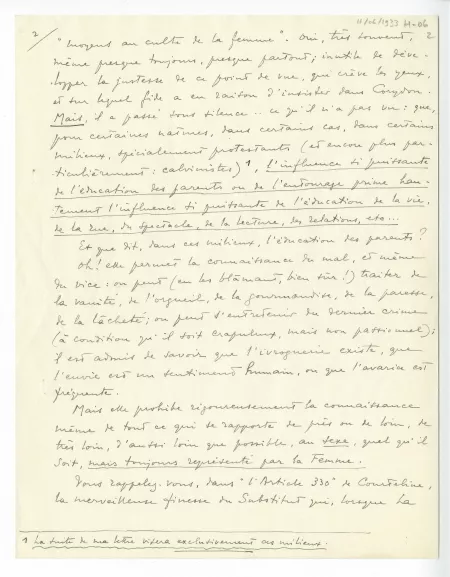 11/06/1933 M-06
2/ "moyens au culte de la femme". Oui, très souvent, 2
même presque toujours, presque partout; inutile de déve-
lopper la justesse de ce point de vue, qui crève les yeux,
et sur lequel Gide a eu raison d'insister dans Corydon.
Mais, il a passé sous silence... ce qu'il n'a pas vu: que,
pour certaines natures, dans certains cas, dans certains
milieux, spécialement protestants (et encore plus par-
ticulièrement: calvinistes) 1, l'influence si puissante
de l'éducation des parents ou de l'entourage prime hau-
tement l'influence si puissante de l'éducation de la vie,
de la rue, du spectacle, de la lecture, des relations, etc...
Et que dit, dans ces milieux, l'éducation des parents?
Oh! elle permet la connaissance du mal, et même
du vice: on peut (en les blâmant, bien sûr!) traiter de
la vanité, de l'orgueil, de la gourmandise, de la paresse,
de la lâcheté; on peut s'entretenir du dernier crime
(à condition qu'il soit crapuleux, mais non passionnel);
il est admis de savoir que l'ivrognerie existe, que
l'envie est un sentiment humain, ou que l'avarice est
fréquente.
Mais elle prohibe rigoureusement la connaissance
même de tout ce qui se rapporte de près ou de loin, de
très loin, d'aussi loin que possible, au sexe, quel qu'il
soit, mais toujours représenté par la Femme.
Vous rappelez-vous, dans "l'Article 330" de Courteline,
la merveilleuse finesse du Substitut qui, lorsque La
1 La suite de ma lettre visera exclusivement ces milieux.